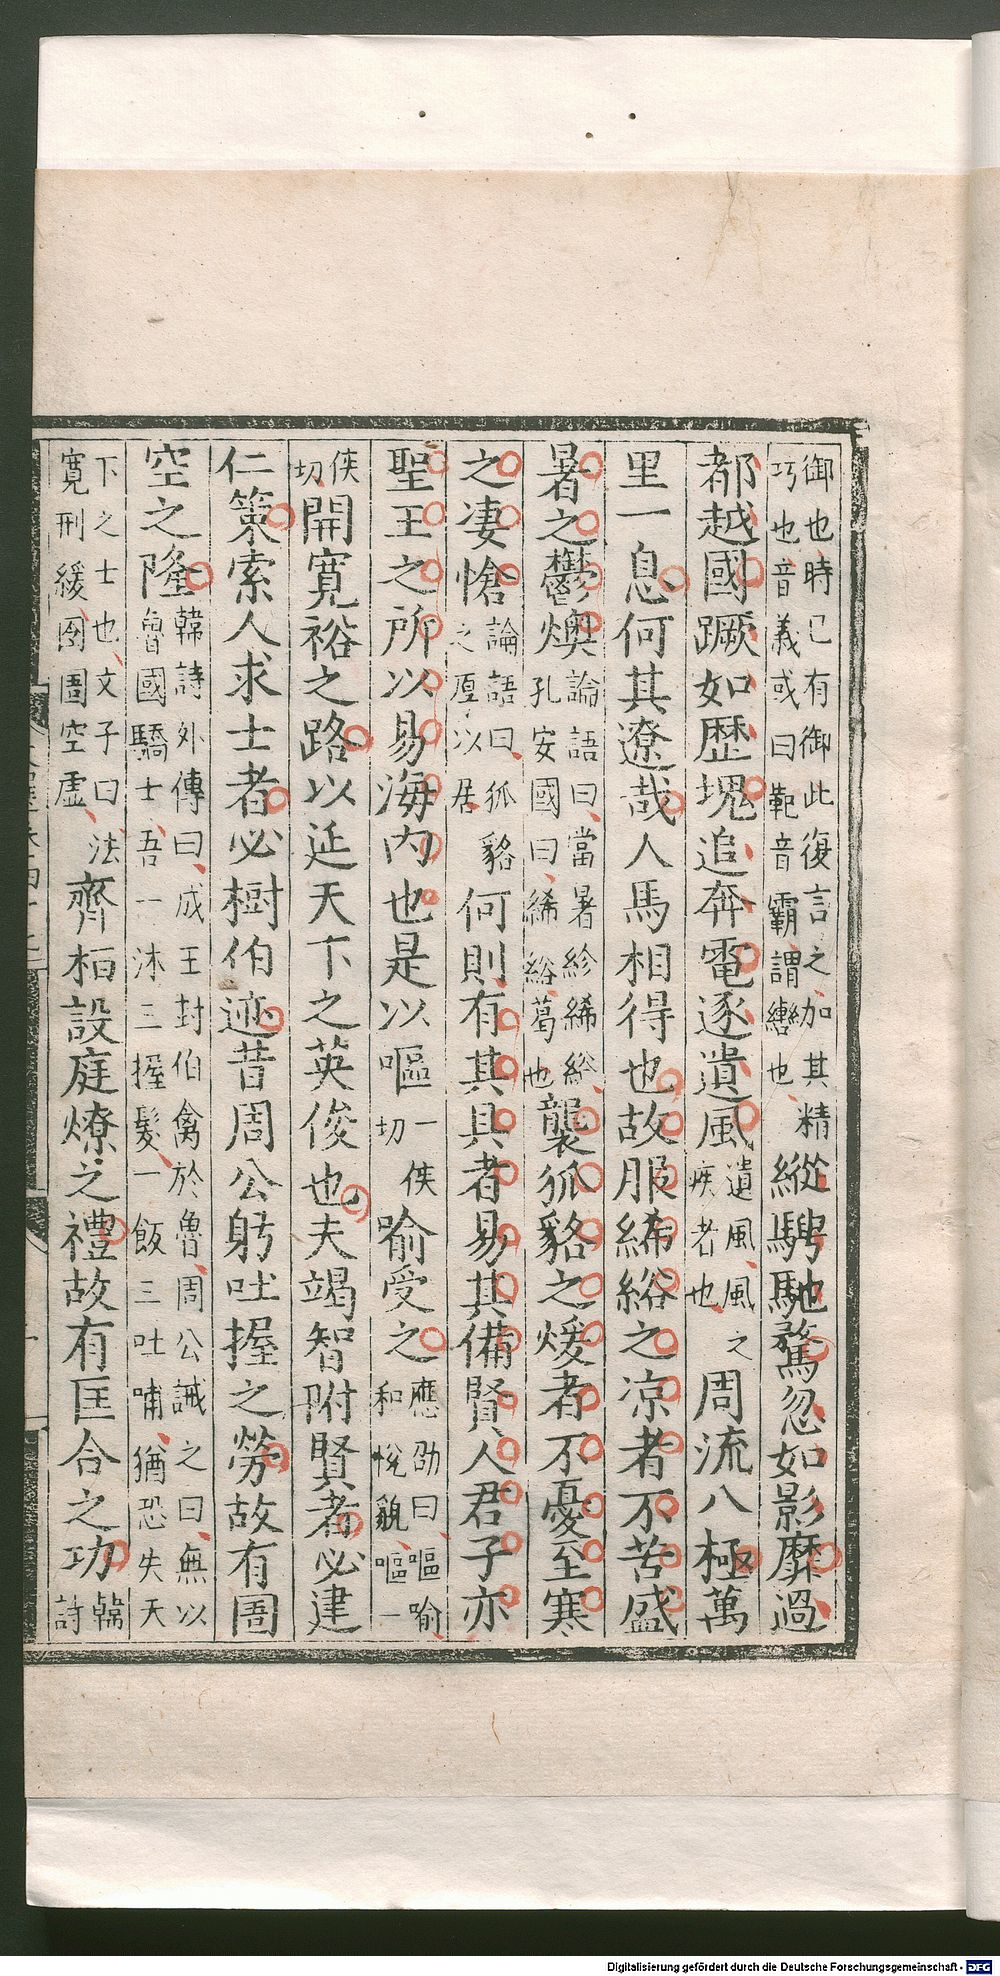 御也時已有御此復言之加其精巧也音義或曰靶音霸謂轡也縱騁馳騖忽如影靡過
都越國蹶如歷塊追奔電逐遺風遺風風之疾者也周流八極萬
里一息何其遼哉人馬相得也故服絺綌之凉者不苦盛
暑之鬱燠論語曰當暑紾絺綌孔安國曰絺綌葛也襲狐貉之煖者不憂至寒
之凄愴論語曰狐貉之厚以居何則有其具者易其備賢人君子亦
聖王之所以易海内也是以嘔一侯切喻受之應劭曰嘔喻和悅貌嘔一
侯切開寬裕之路以延天下之英俊也夫竭智附賢者必建
仁策索人求士者必樹伯迹昔周公躬吐握之勞故有圄
空之隆韓詩外傳曰成王封伯禽於魯周公誡之曰無以魯國驕士吾一沐三握髮一飯三吐哺猶恐失天
下之士也文子曰法寬刑緩囹圄空虛齊桓設庭燎之禮故有匡合之功韓詩
Digitalisierung gefördert durch die Deutsche Forschungsgemeinschaft - DFG